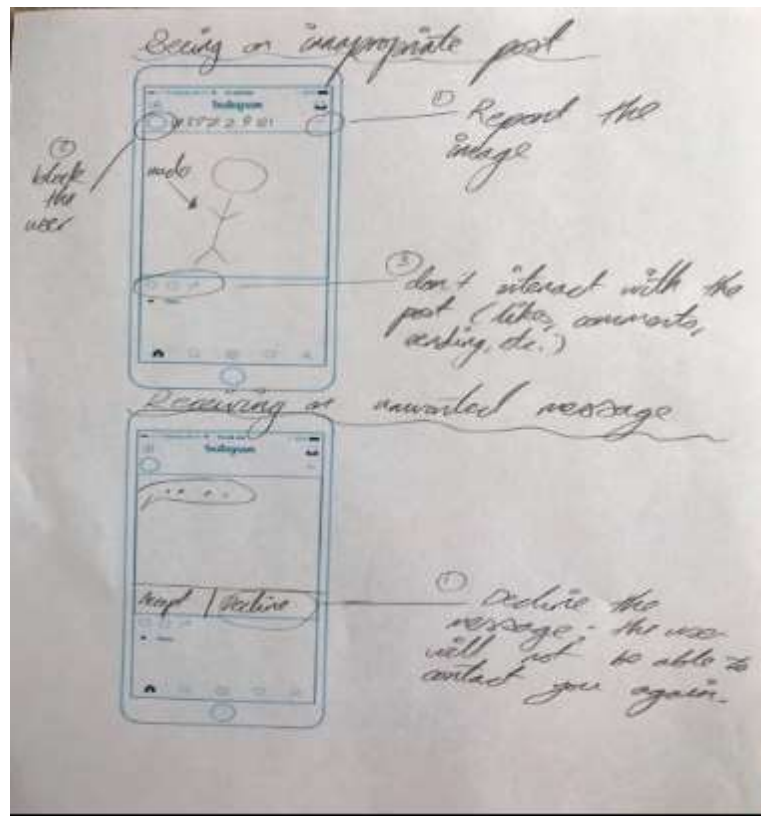 Seeing an inappropriate post
Instagram
① Report the
image
② block
the
user
nude
③ don't interact with the
post (likes, comments,
sending, etc.)
Receiving an unwanted message
Instagram
Accept | Decline
① Decline the
message; the user
will not be able to
contact you again.